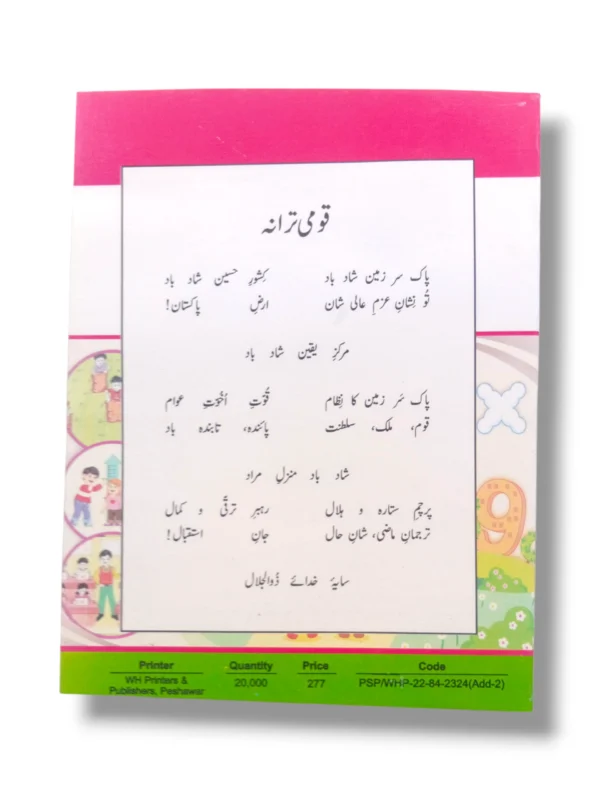 قومی ترانہ
پاک سر زمین شاد باد کِشورِ حسین شاد باد
تُو نِشانِ عزمِ عالی شان ارضِ پاکستان!
مرکزِ یقین شاد باد
پاک سَر زمین کا نِظام قُوّتِ اُخوّتِ عوام
قوم، ملک، سلطنت پائندہ، تابندہ باد
شاد باد منزلِ مراد
پرچمِ ستارہ و ہلال رہبرِ ترقّی و کمال
ترجمانِ ماضی، شانِ حال جانِ استقبال!
سایۂ خدائے ذُوالجلال
9
Printer Quantity Price Code
WH Printers & Publishers, Peshawar 20,000 277 PSP/WHP-22-84-2324(Add-2)